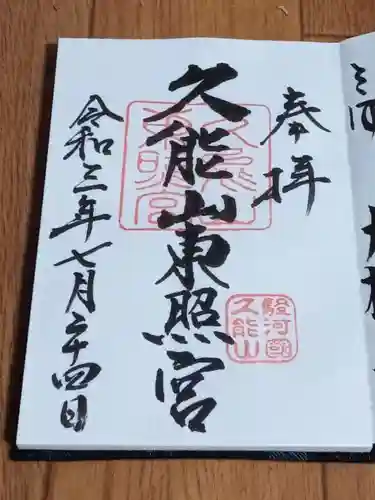 奉拝
久能山東照宮
令和三年七月二十四日
久能山東照宮
駿河國
久能山